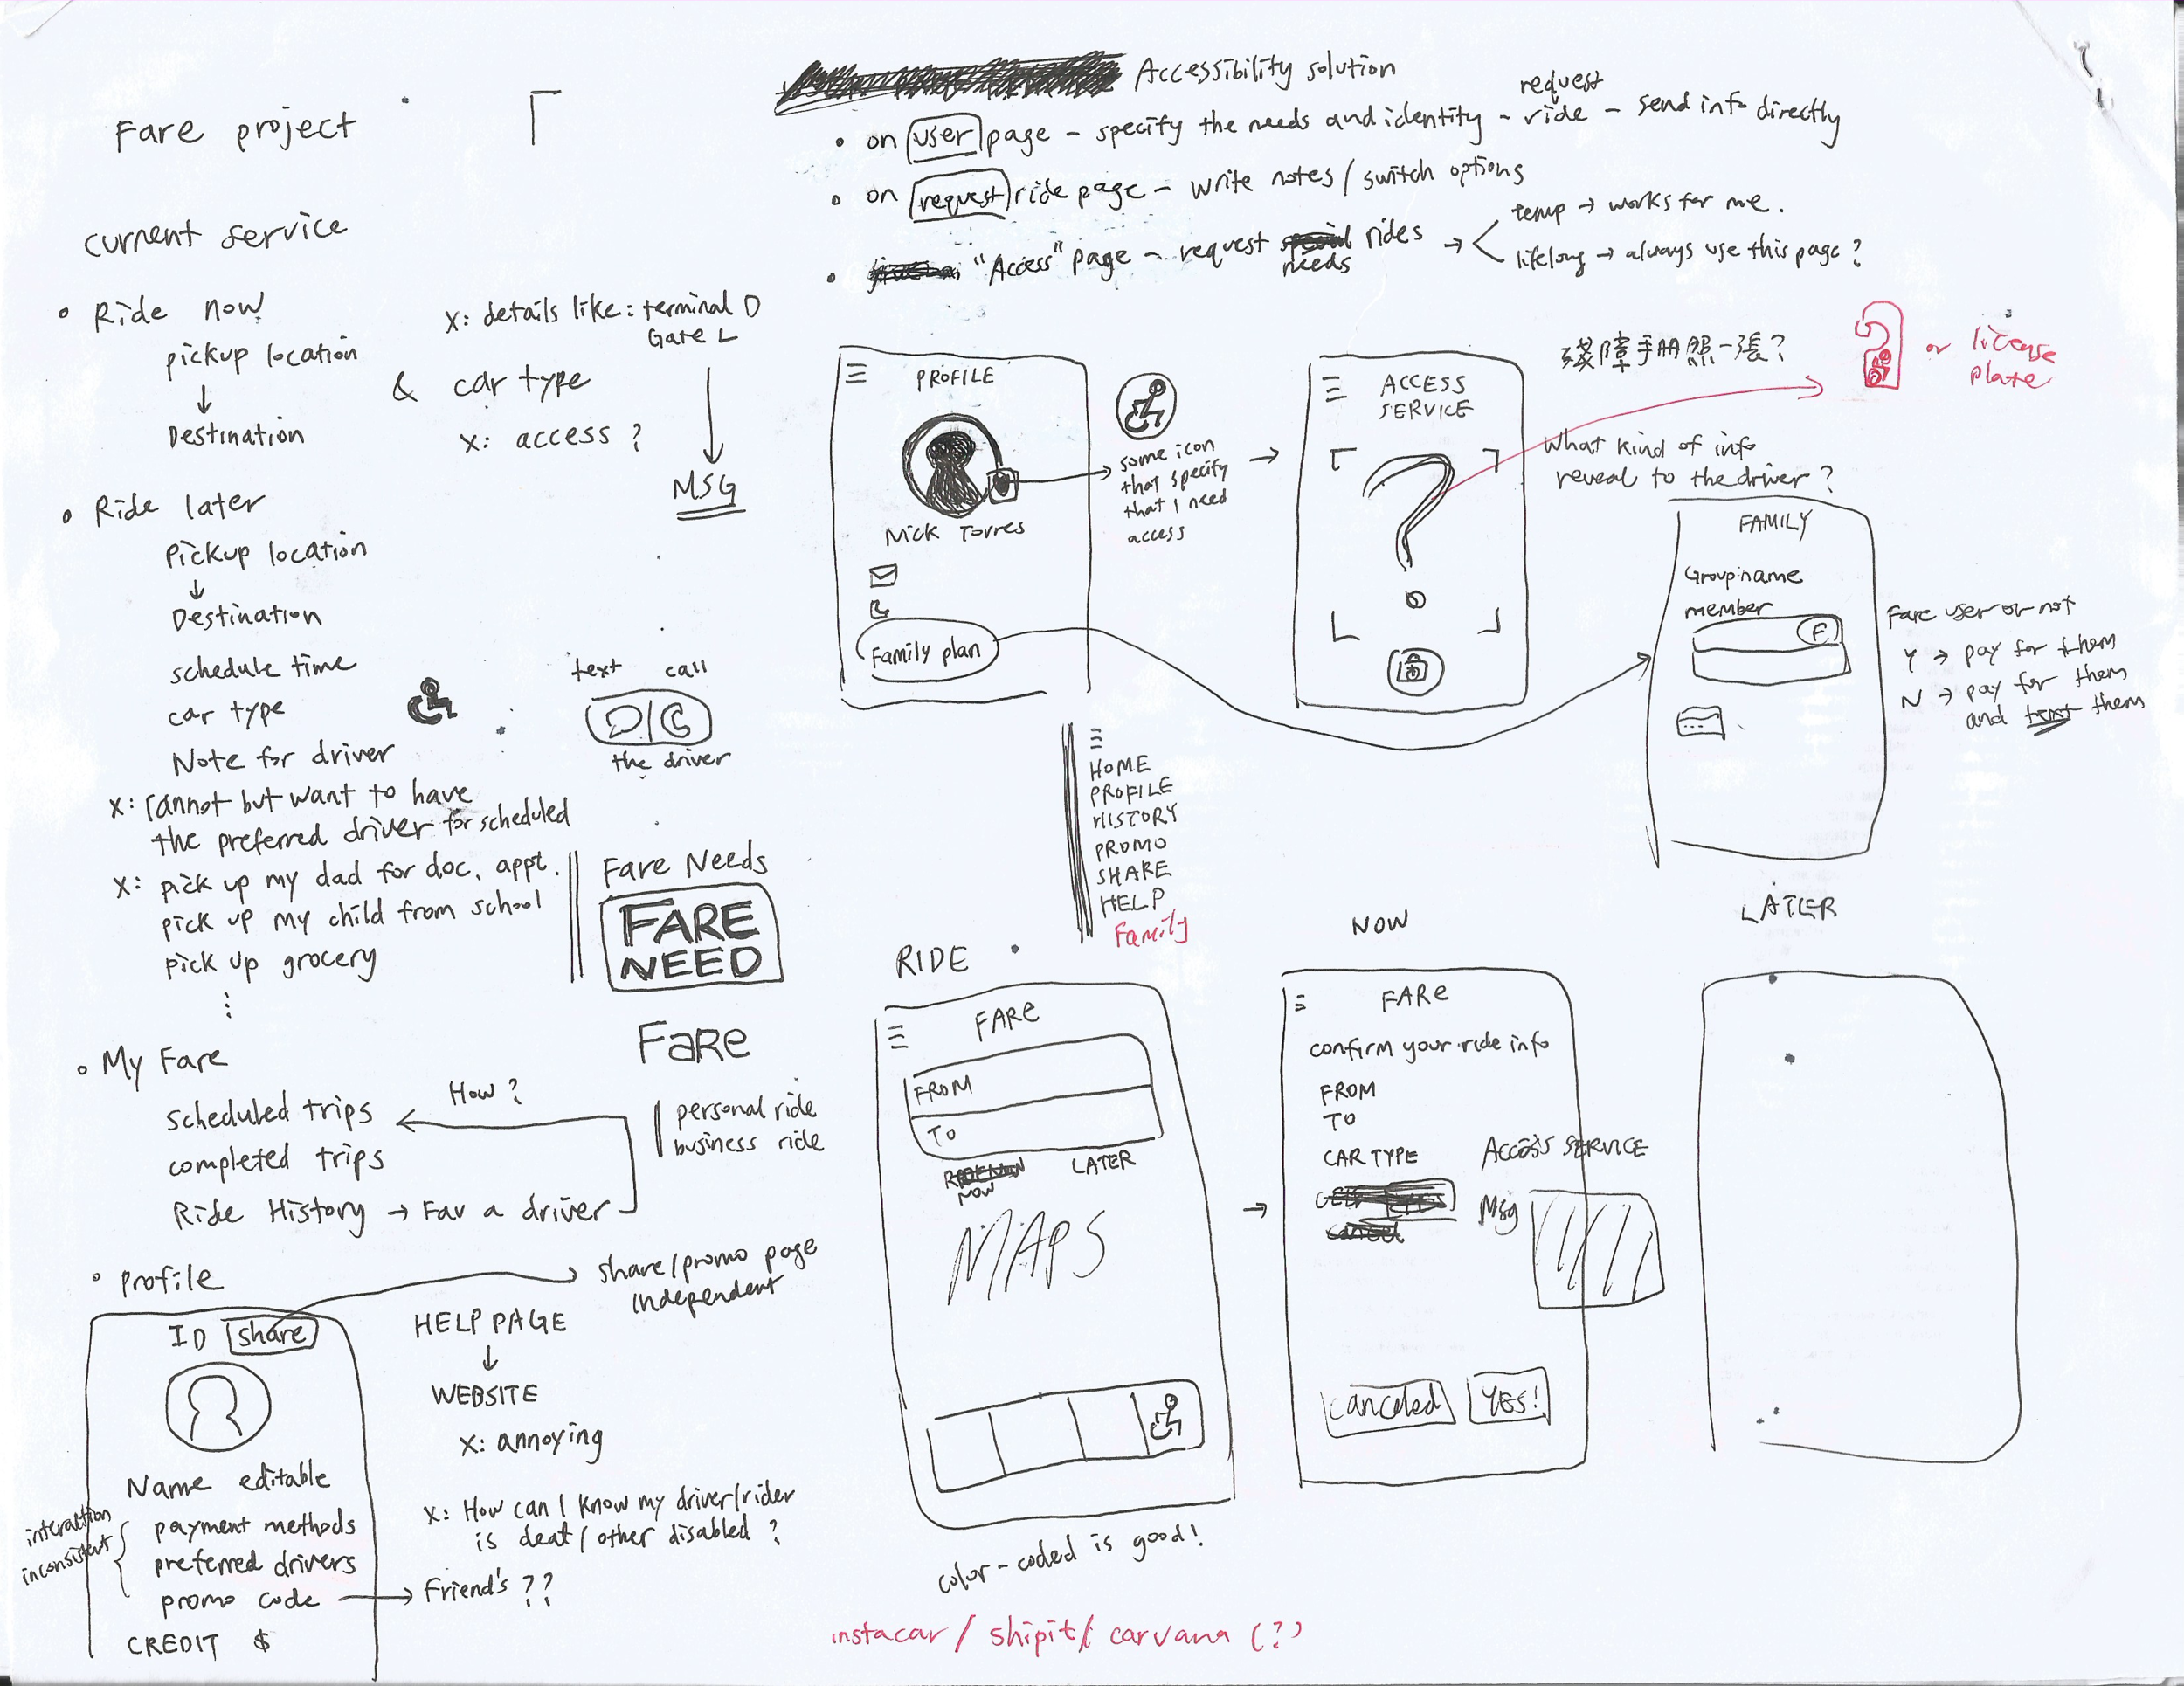 Fare project
current service
• Ride now
pickup location
↓
Destination
& car type
X: access ?
X: details like: terminal D
Gate L
MSG
• Ride later
Pickup location
↓
Destination
schedule time
car type
Note for driver
X: cannot but want to have
the preferred driver for scheduled
X: pick up my dad for doc. appt.
pick up my child from school
pick up grocery
⋮
text call
the driver
Fare Needs
FARE
NEED
Fare
personal ride
business ride
• My Fare
scheduled trips
completed trips
Ride History → Fav a driver
How ?
• Profile
ID share
share/promo page
independent
Name editable
interaction
inconsistent
payment methods
preferred drivers
promo code → Friend's ??
CREDIT $
HELP PAGE
↓
WEBSITE
X: annoying
X: How can I know my driver/rider
is deaf/other disabled ?
Accessibility solution
request
• on user page – specify the needs and identity – ride – send info directly
• on request ride page – write notes / switch options
• "Access" page – request rides →
needs
temp → works for me.
lifelong → always use this page ?
PROFILE
Nick Torres
Family plan
some icon
that specify
that I need
access
ACCESS
SERVICE
?
殘障手册照一張?
or license
plate
What kind of info
reveal to the driver ?
FAMILY
Group name
member
F
Fare user or not
Y → pay for them
N → pay for them
and text them
HOME
PROFILE
HISTORY
PROMO
SHARE
HELP
Family
RIDE
FARE
FROM
TO
NOW LATER
MAPS
color-coded is good!
NOW
FARE
confirm your ride info
FROM
TO
CAR TYPE
ACCESS SERVICE
Msg
cancel
canceled YES!
LATER
instacar / shipit / carvana (?)